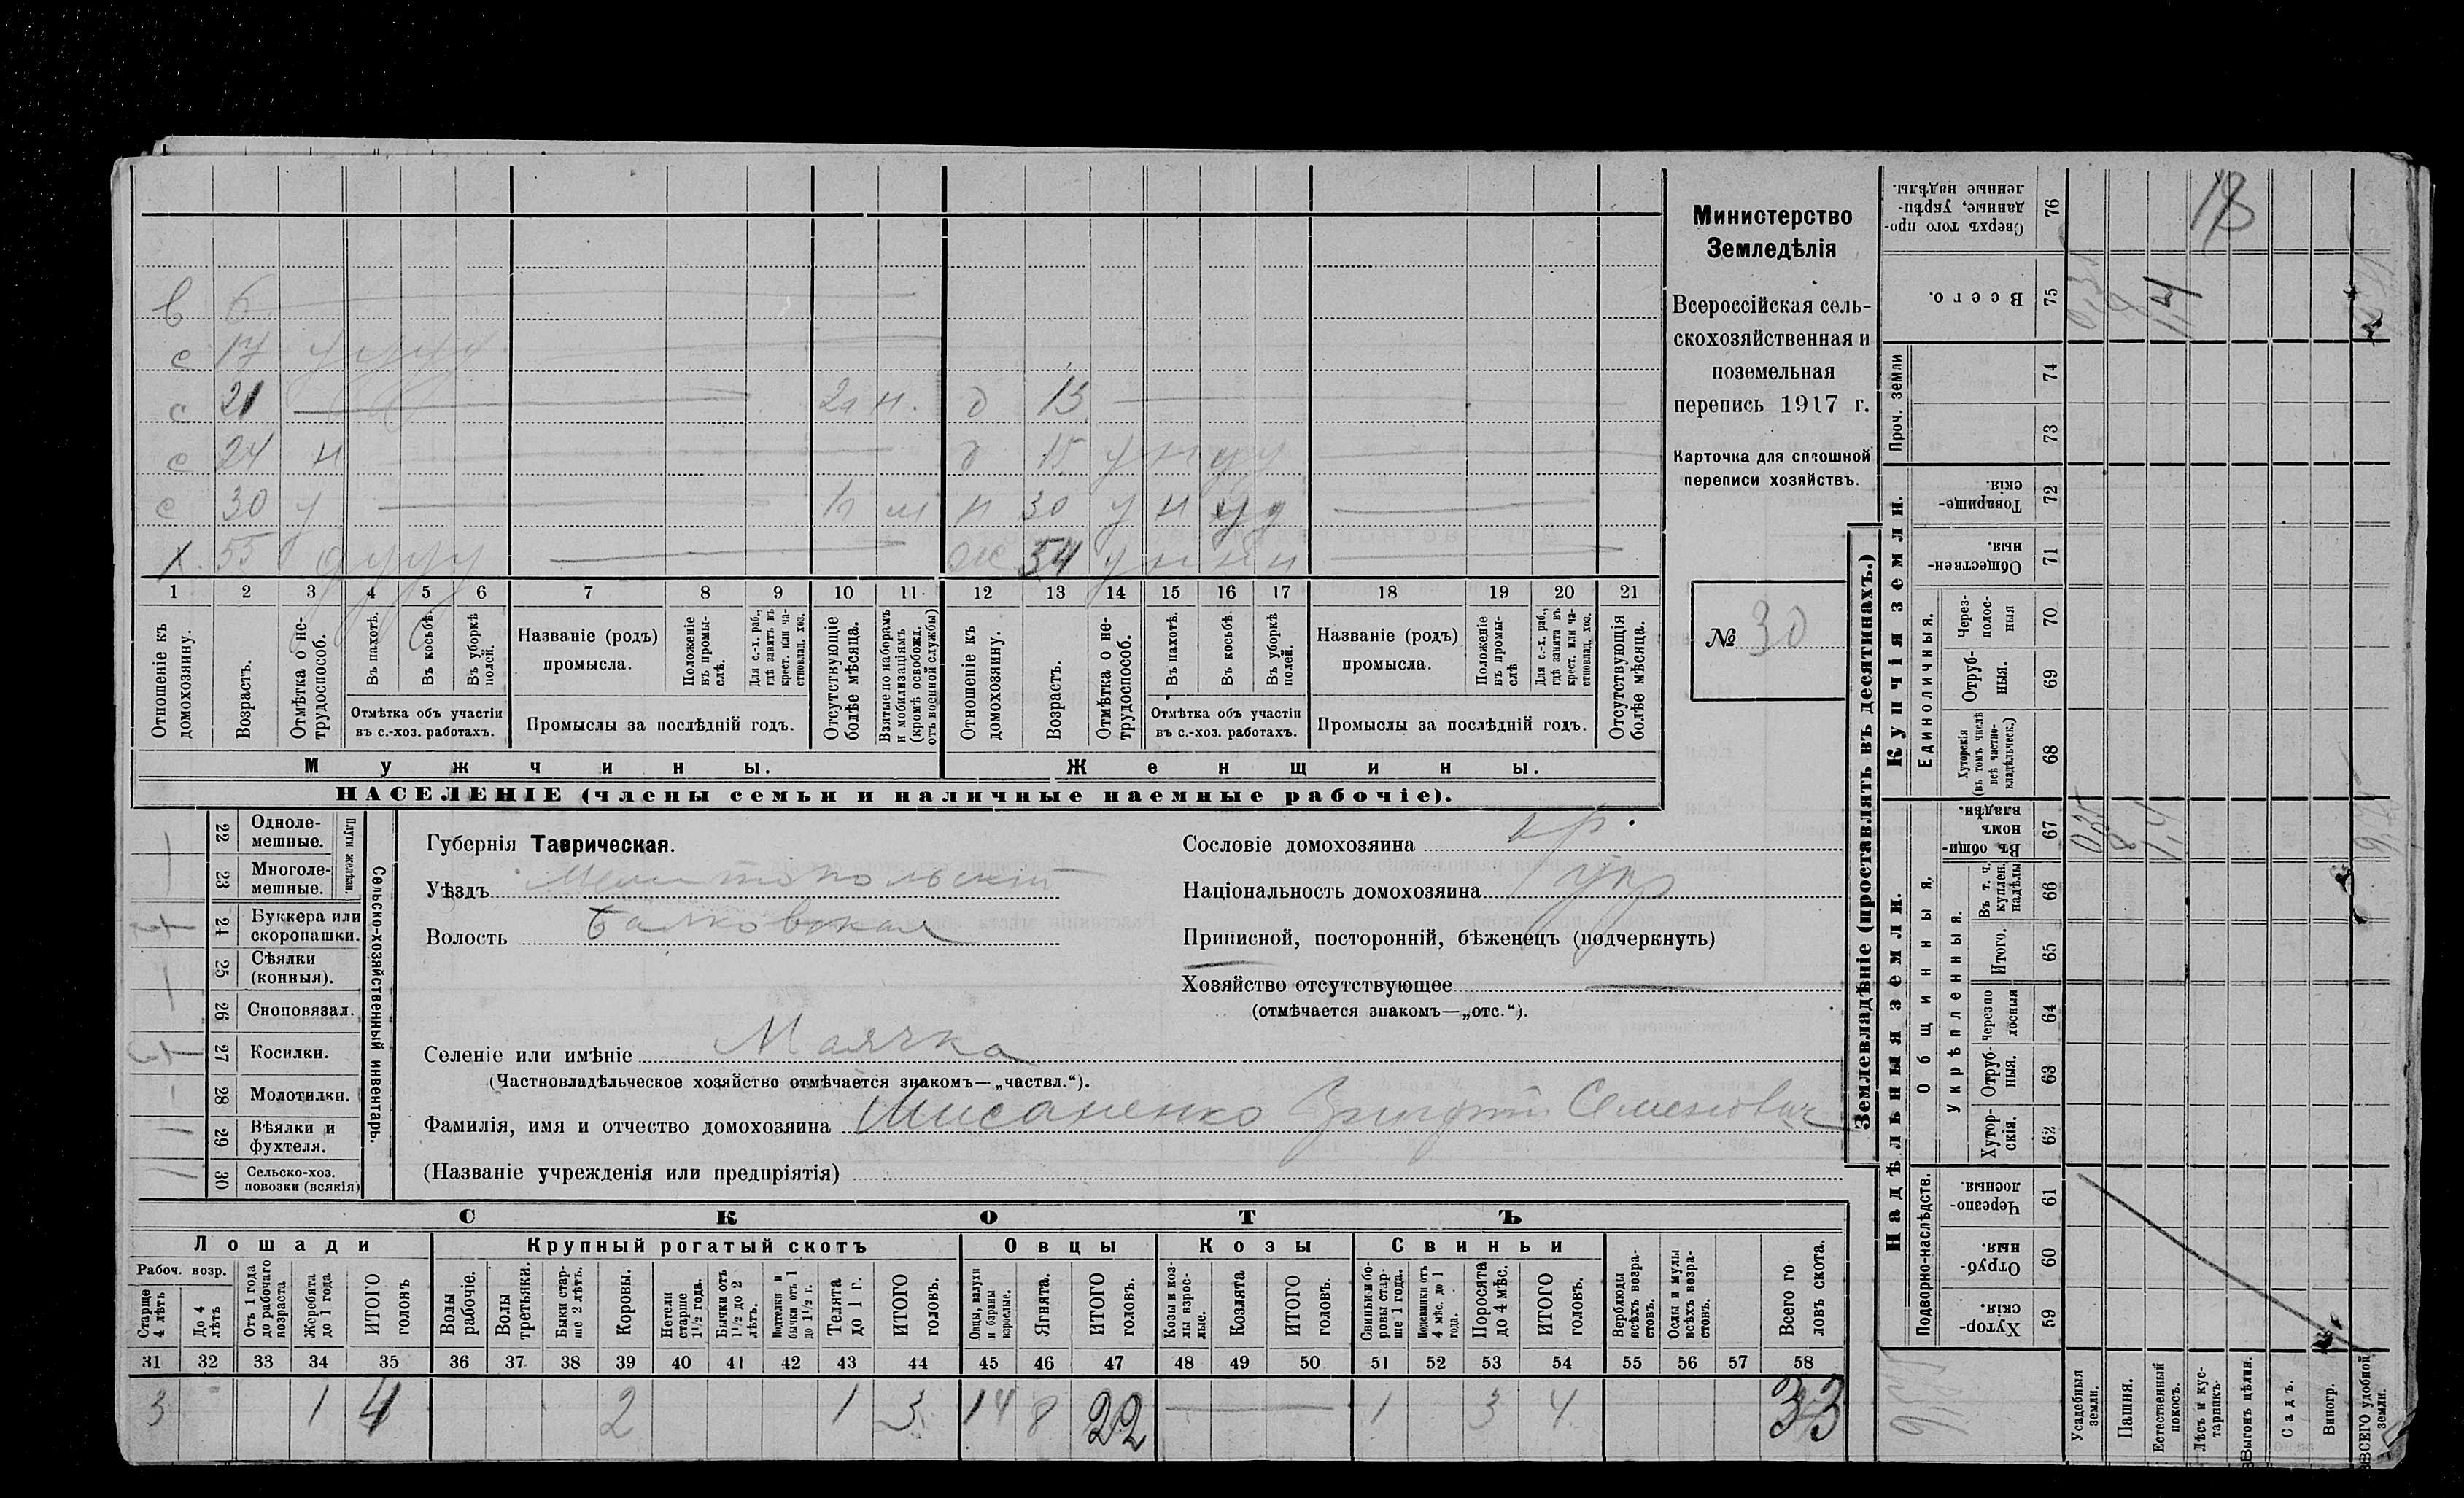 в 6
с 17 у у у у
с 21 2г н. д 13
с 24 н д 15 у н у у
с 30 у 1г м н 30 у н у у
х. 55 у у у у ж 54 у н н н
1 2 3 4 5 6 7 8 9 10 11 12 13 14 15 16 17 18 19 20 21
Отношеніе къ домохозяину.
Возрастъ.
Отмѣтка о не-
трудоспособ.
Въ пахотѣ.
Въ косьбѣ.
Въ уборкѣ полей.
Отмѣтка объ участіи
въ с.-хоз. работахъ.
Названіе (родъ)
промысла.
Положеніе въ промы-
слѣ.
Для с.-х. раб., гдѣ занятъ въ крест. или ча-
стновлад. хоз.
Промыслы за послѣдній годъ.
Отсутствующіе болѣе мѣсяца.
Взятые по наборамъ и мобилизаціямъ (кромѣ освобожд. отъ военной службы)
Отношеніе къ домохозяину.
Возрастъ.
Отмѣтка о не-
трудоспособ.
Въ пахотѣ.
Въ косьбѣ.
Въ уборкѣ полей.
Отмѣтка объ участіи
въ с.-хоз. работахъ.
Названіе (родъ)
промысла.
Положеніе въ промы-
слѣ
Для с.-х. раб., гдѣ занята въ крест. или ча-
стновлад. хоз.
Промыслы за послѣдній годъ.
Отсутствующія болѣе мѣсяца.
Мужчины.
Женщины.
НАСЕЛЕНІЕ (члены семьи и наличные наемные рабочіе).
Министерство
Земледѣлія
Всероссійская сель-
скохозяйственная и
поземельная
перепись 1917 г.
Карточка для сплошной
переписи хозяйствъ.
№ 30
22 Одноле-
мешные.
23 Многоле-
мешные.
Плуги желѣзн.
24 Буккера или
скоропашки.
25 Сѣялки
(конныя).
26 Сноповязал.
27 Косилки.
28 Молотилки.
29 Вѣялки и
фухтеля.
30 Сельско-хоз.
повозки (всякія)
Сельско-хозяйственный инвентарь.
Губернія Таврическая.
Уѣздъ Мелитопольскій
Волость Балковская
Сословіе домохозяина кр.
Національность домохозяина укр
Приписной, посторонній, бѣженецъ (подчеркнуть)
Хозяйство отсутствующее
(отмѣчается знакомъ—„отс.“).
Селеніе или имѣніе Маячка
(Частновладѣльческое хозяйство отмѣчается знакомъ—„частвл.“).
Фамилія, имя и отчество домохозяина Мисаненко Григорій Семеновичъ
(Названіе учрежденія или предпріятія)
СКОТЪ
Лошади
Крупный рогатый скотъ
Овцы
Козы
Свиньи
Рабоч. возр.
Старше 4 лѣтъ
До 4 лѣтъ
Отъ 1 года до рабочаго возраста
Жеребята до 1 года
ИТОГО головъ
Волы рабочіе.
Волы третьяки.
Быки стар-
ше 2 лѣтъ.
Коровы.
Нетели старше 1½ года.
Бычки отъ 1½ до 2 лѣтъ.
Подтелки и бычки отъ 1 до 1½ г.
Телята до 1 г.
ИТОГО головъ.
Овцы, валухи и бараны взрослые.
Ягнята.
ИТОГО головъ.
Козы и коз-
лы взрос-
лые.
Козлята
ИТОГО головъ.
Свиньи и бо-
ровы стар-
ше 1 года.
Подсвинки отъ 4 мѣс. до 1 года.
Поросята до 4 мѣс.
ИТОГО головъ.
Верблюды всѣхъ возра-
стовъ.
Ослы и мулы всѣхъ возра-
стовъ.
Всего го-
ловъ скота.
31 32 33 34 35 36 37 38 39 40 41 42 43 44 45 46 47 48 49 50 51 52 53 54 55 56 57 58
3 1 4 2 1 3 14 8 22 1 3 4 33
Землевладѣніе (проставлять въ десятинахъ.)
Купчія земли.
Надѣльныя земли.
Сверхъ того про-
данные, укрѣп-
ленные надѣлы.
76
Всего.
75 0,35 8 1,4
Проч. земли
74
73
Товарище-
скія.
72
Обществен-
ныя.
71
Единоличныя.
Через-
полос-
ныя
70
Отруб-
ныя.
69
Хуторскія (въ томъ числѣ всѣ частно-
владѣльческ.)
68
Общинныя.
Въ общи-
номъ
владѣн.
67 0,35 8 1,4 9,75
Укрѣпленныя.
Въ т. ч. куплен. надѣлы
66
Итого.
65
Черезпо
лосныя
64
Отруб-
ныя.
63
Хутор-
скія.
62
Подворно-наслѣдств.
Черезпо-
лосныя.
61
Отруб-
ныя.
60
Хутор-
скія
59
Усадебныя земли.
Пашня.
Естественный покосъ.
Лѣсъ и кус-
тарникъ.
Выгонъ цѣлин.
Садъ.
Виногр.
ВСЕГО удобной земли.